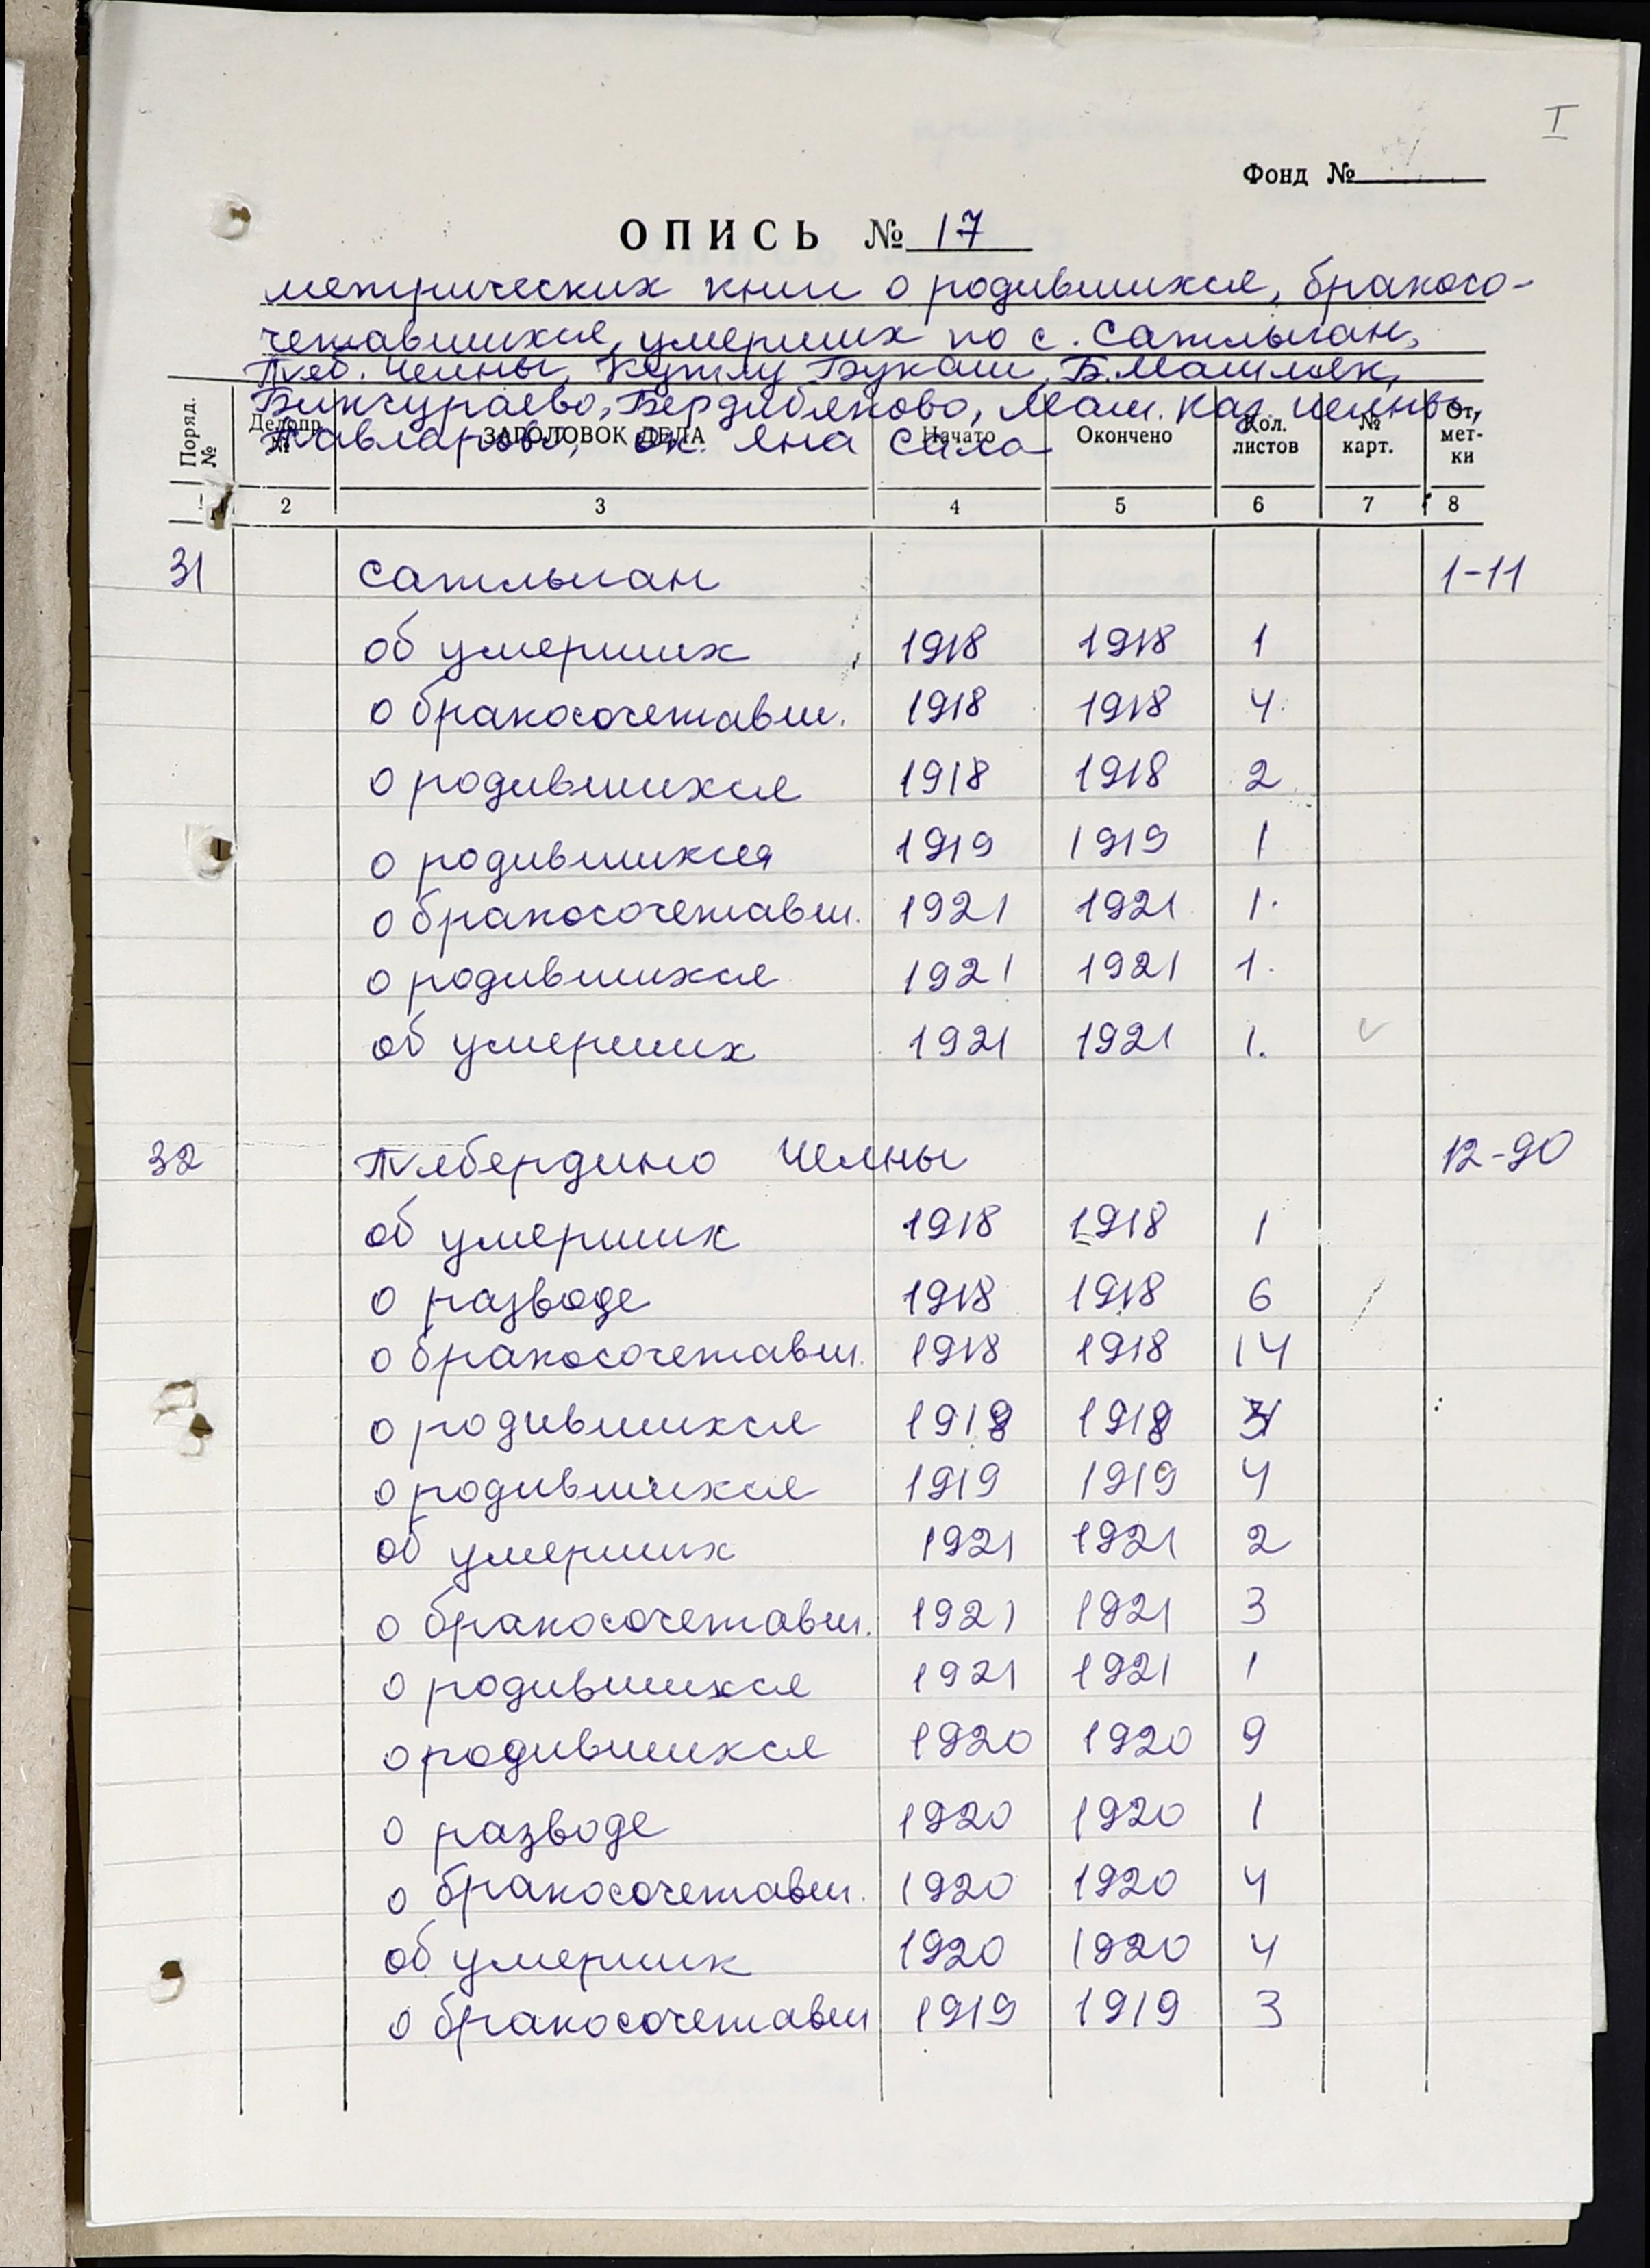 I
Фонд №
ОПИСЬ № 17
метрических книг о родившихся, бракосо-
четавшихся, умерших по с. Сатлыган,
Тляб. Челны, Кутлу Букаш, Б. Машляк,
Бикчураево, Бердибяково, Маш. Каз. Челны,
Тавларово, Яна Сала
Поряд. № Делопр. № ЗАГОЛОВОК ДЕЛА Начато Окончено Кол. листов № карт. От- мет- ки
1 2 3 4 5 6 7 8
31 Сатлыган 1-11
об умерших 1918 1918 1
о бракосочетавш. 1918 1918 4
о родившихся 1918 1918 2
о родившихся 1919 1919 1
о бракосочетавш. 1921 1921 1.
о родившихся 1921 1921 1.
об умерших 1921 1921 1.
32 Тлябердино Челны 12-90
об умерших 1918 1918 1
о разводе 1918 1918 6
о бракосочетавш. 1918 1918 14
о родившихся 1918 1918
о родившихся 1919 1919 4
об умерших 1921 1921 2
о бракосочетавш. 1921 1921 3
о родившихся 1921 1921 1
о родившихся 1920 1920 9
о разводе 1920 1920 1
о бракосочетавш. 1920 1920 4
об умерших 1920 1920 4
о бракосочетавш 1919 1919 3